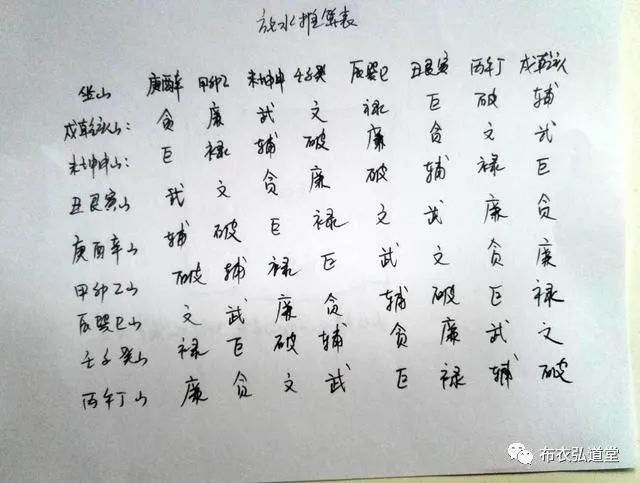 放水推算表
坐山 庚酉辛 甲卯乙 未坤申 壬子癸 辰巽巳 丑艮寅 丙午丁 戌乾亥
戌乾亥山: 贪 廉 武 文 禄 巨 破 辅
未坤申山: 巨 禄 辅 破 廉 贪 文 武
丑艮寅山 武 文 贪 廉 破 辅 禄 巨
庚酉辛山 辅 破 巨 禄 文 武 廉 贪
甲卯乙山 破 辅 禄 巨 武 文 贪 廉
辰巽巳山 文 武 廉 贪 辅 破 巨 禄
壬子癸山 禄 巨 破 辅 贪 廉 武 文
丙午丁山 廉 贪 文 武 巨 禄 辅 破
布衣弘道堂